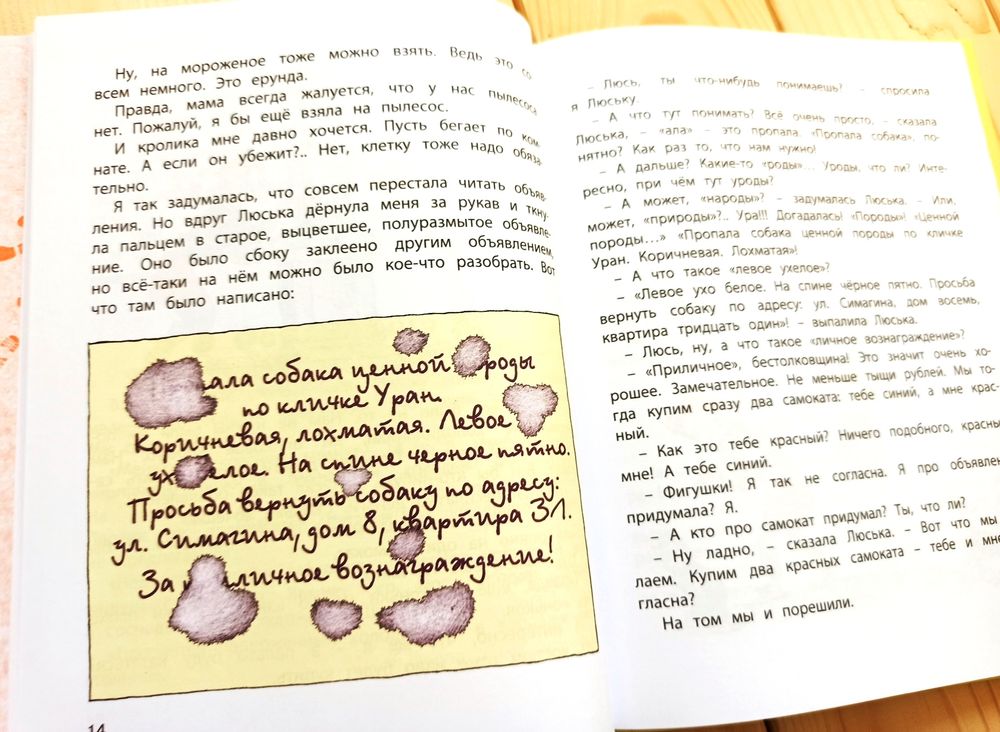 Ну, на мороженое тоже можно взять. Ведь это со-
всем немного. Это ерунда.
Правда, мама всегда жалуется, что у нас пылесоса
нет. Пожалуй, я бы ещё взяла на пылесос.
И кролика мне давно хочется. Пусть бегает по ком-
нате. А если он убежит?.. Нет, клетку тоже надо обяза-
тельно.
Я так задумалась, что совсем перестала читать объяв-
ления. Но вдруг Люська дёрнула меня за рукав и ткну-
ла пальцем в старое, выцветшее, полуразмытое объявле-
ние. Оно было сбоку заклеено другим объявлением,
но всё-таки на нём можно было кое-что разобрать. Вот
что там было написано:
ала собака ценной роды
по кличке Уран.
Коричневая, лохматая. Левое
ух елое. На спине черное пятно.
Просьба вернуть собаку по адресу:
ул. Симагина, дом 8, квартира 31.
За личное вознаграждение!
14
– Люсь, ты что-нибудь понимаешь? – спросила
я Люську.
– А что тут понимать? Всё очень просто, – сказала
Люська, – «ала» – это пропала. «Пропала собака», по-
нятно? Как раз то, что нам нужно!
– А дальше? Какие-то «роды»... Уроды, что ли? Инте-
ресно, при чём тут уроды?
– А может, «народы»? – задумалась Люська. – Или,
может, «природы»?.. Ура!!! Догадалась! «Породы»! «Ценной
породы...» «Пропала собака ценной породы по кличке
Уран. Коричневая. Лохматая»!
– А что такое «левое ухелое»?
– «Левое ухо белое. На спине чёрное пятно. Просьба
вернуть собаку по адресу: ул. Симагина, дом восемь,
квартира тридцать один»! – выпалила Люська.
– Люсь, ну, а что такое «личное вознаграждение»?
– «Приличное», бестолковщина! Это значит очень хо-
рошее. Замечательное. Не меньше тыщи рублей. Мы то-
гда купим сразу два самоката: тебе синий, а мне крас-
ный.
– Как это тебе красный? Ничего подобного, красны
мне! А тебе синий.
– Фигушки! Я так не согласна. Я про объявлен
придумала? Я.
– А кто про самокат придумал? Ты, что ли?
– Ну ладно, – сказала Люська. – Вот что мы
лаем. Купим два красных самоката – тебе и мне
гласна?
На том мы и порешили.